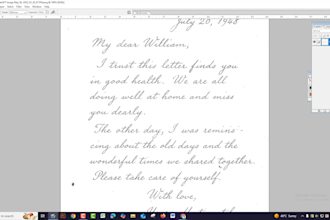 July 20, 1948
My dear William,
I trust this letter finds you
in good health. We are all
doing well at home and miss
you dearly.
The other day, I was remins-
cing about the old days and the
wonderful times we shared together.
Please take care of yourself.
With love,